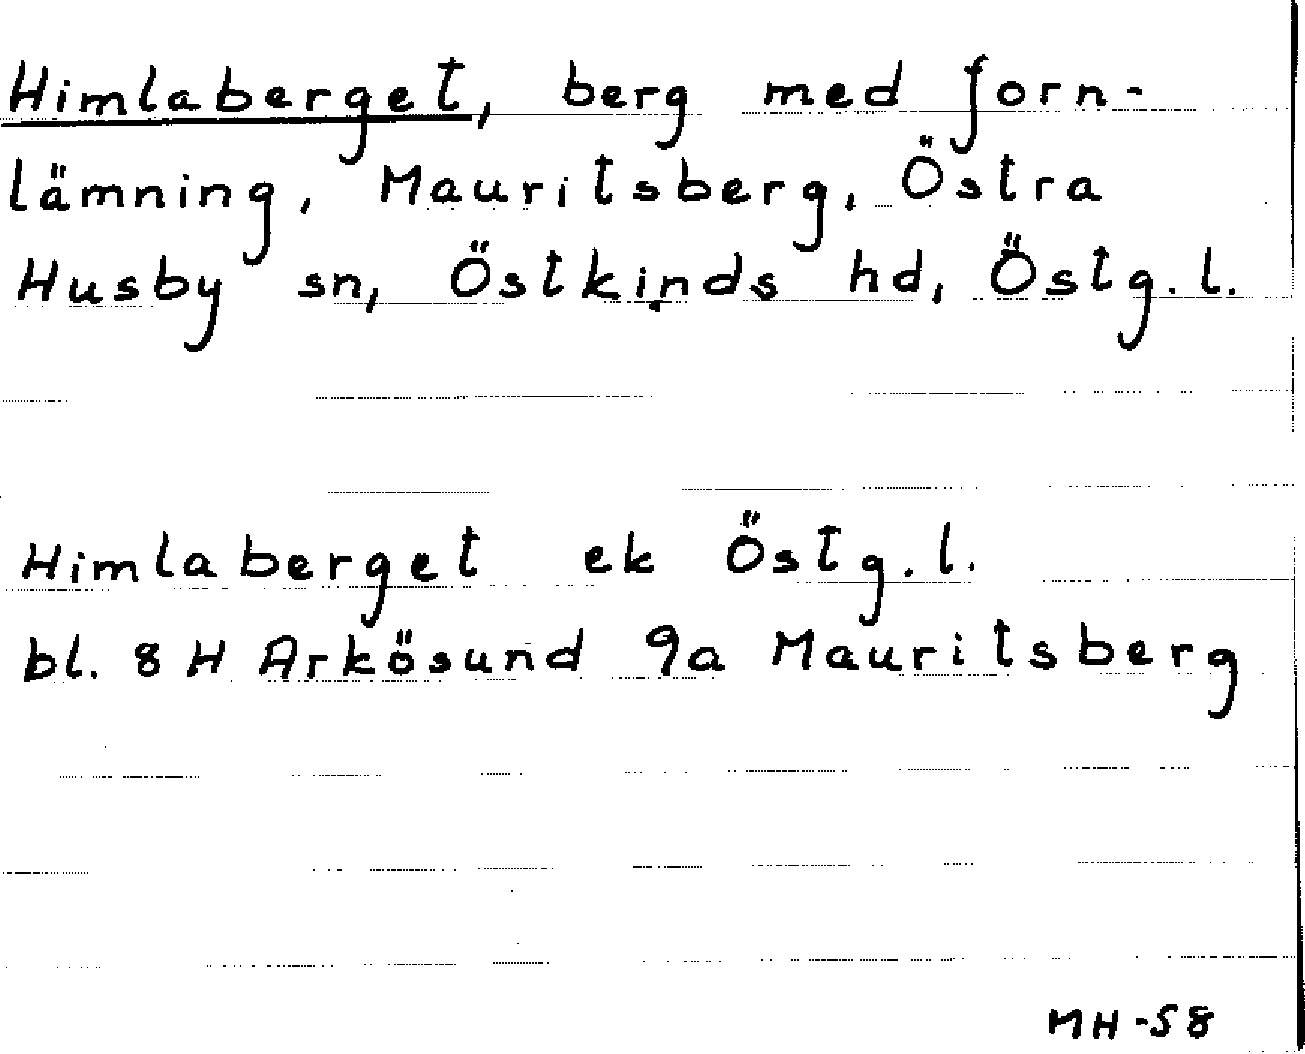 Himlaberget, berg med forn-
lämning, Mauritsberg, Östra
Husby sn, Östkinds hd, Östg.l.
Himlaberget ek Östg.l.
bl. 8 H Arkösund 9a Mauritsberg
MH-58